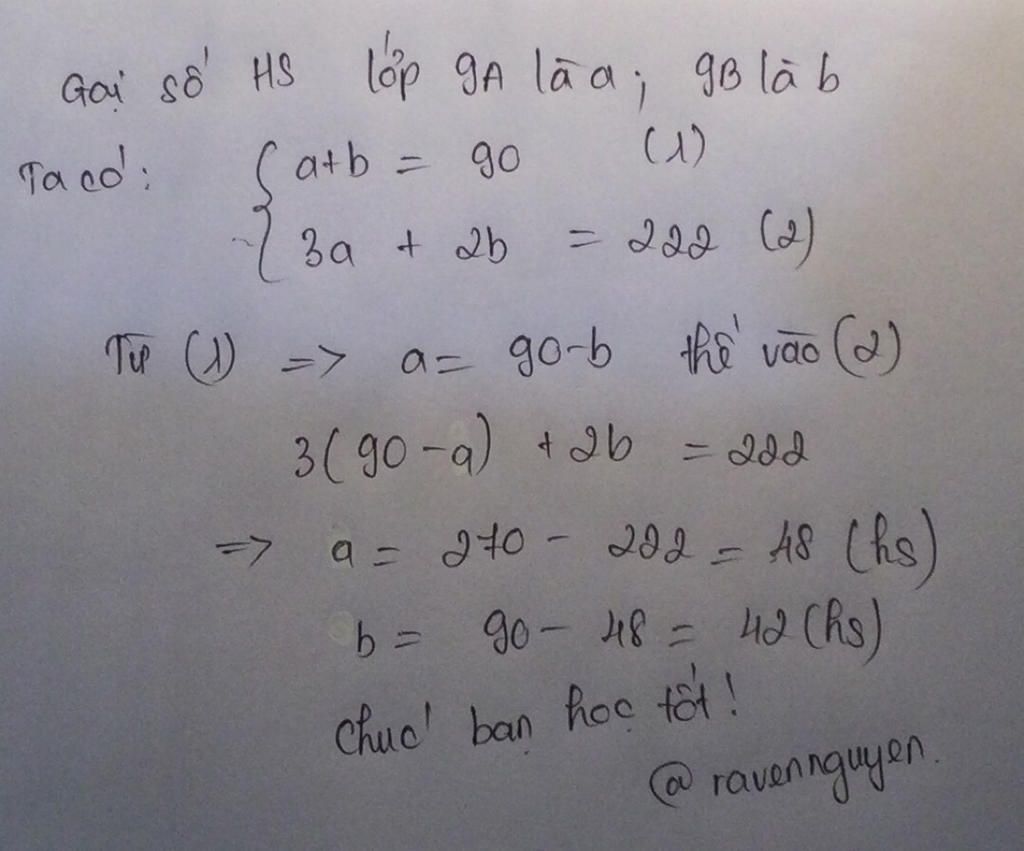 Gọi số HS lớp 9A là a; 9B là b
Ta có: { a+b = 90 (1)
3a + 2b = 222 (2)
Từ (1) => a = 90-b thế vào (2)
3(90-a) + 2b = 222
=> a = 270 - 222 = 48 (hs)
b = 90 - 48 = 42 (hs)
Chúc bạn học tốt!
@ravennguyen.